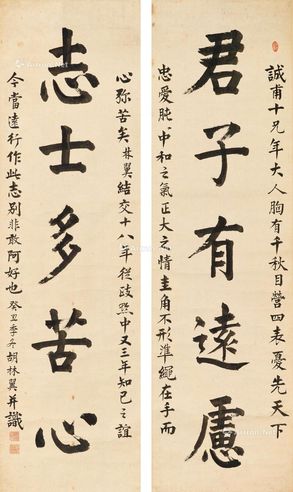 誠甫十兄年大人胸有千秋目營四表憂先天下
君子有遠慮
忠愛肫〻中和之氣正大之情圭角不形準繩在手而
心弥苦矣林翼結交十八年從政黔中又三年知己之誼
志士多苦心
今當遠行作此志別非敢阿好也癸丑季冬胡林翼并識